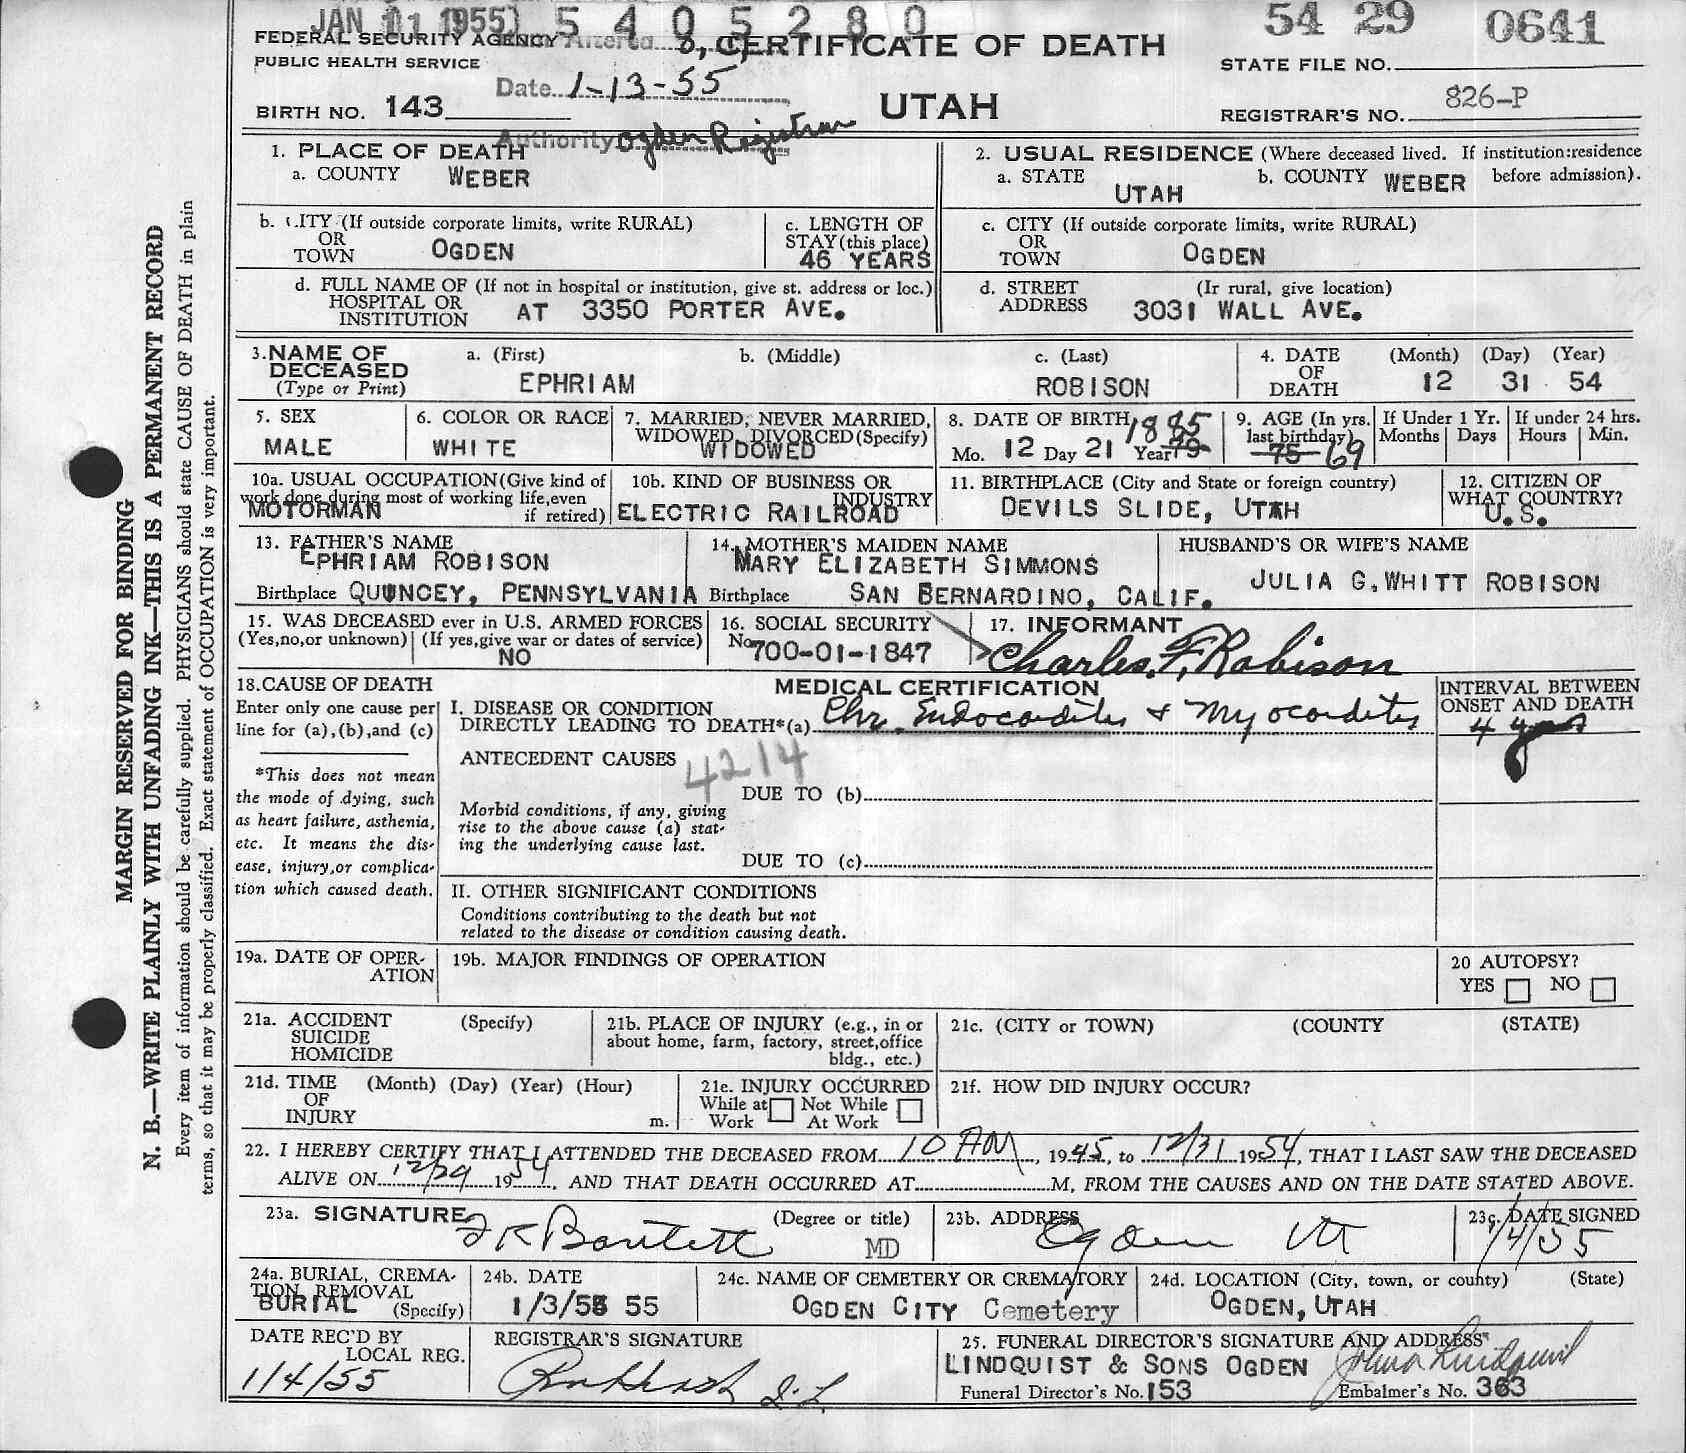 JAN 11 1955 5 4 0 5 2 8 0 54 29 0641
FEDERAL SECURITY AGENCY Altered 8, 9, CERTIFICATE OF DEATH
PUBLIC HEALTH SERVICE STATE FILE NO.
Date 1-13-55
BIRTH NO. 143 UTAH REGISTRAR'S NO. 826-P
Authority Ogden Registrar
1. PLACE OF DEATH
a. COUNTY WEBER
2. USUAL RESIDENCE (Where deceased lived. If institution:residence before admission).
a. STATE UTAH b. COUNTY WEBER
b. CITY (If outside corporate limits, write RURAL)
OR
TOWN OGDEN
c. LENGTH OF
STAY (this place)
46 YEARS
c. CITY (If outside corporate limits, write RURAL)
OR
TOWN OGDEN
d. FULL NAME OF (If not in hospital or institution, give st. address or loc.)
HOSPITAL OR
INSTITUTION AT 3350 PORTER AVE.
d. STREET (Ir rural, give location)
ADDRESS 3031 WALL AVE.
3. NAME OF
DECEASED
(Type or Print)
a. (First) b. (Middle) c. (Last)
EPHRIAM ROBISON
4. DATE
OF
DEATH
(Month) (Day) (Year)
12 31 54
5. SEX
MALE
6. COLOR OR RACE
WHITE
7. MARRIED, NEVER MARRIED,
WIDOWED, DIVORCED (Specify)
WIDOWED
8. DATE OF BIRTH 1885
Mo. 12 Day 21 Year 79
9. AGE (In yrs.
last birthday)
75 69
If Under 1 Yr.
Months Days
If under 24 hrs.
Hours Min.
10a. USUAL OCCUPATION (Give kind of
work done during most of working life, even
if retired)
MOTORMAN
10b. KIND OF BUSINESS OR
INDUSTRY
ELECTRIC RAILROAD
11. BIRTHPLACE (City and State or foreign country)
DEVILS SLIDE, UTAH
12. CITIZEN OF
WHAT COUNTRY?
U.S.
13. FATHER'S NAME
EPHRIAM ROBISON
Birthplace QUINCEY, PENNSYLVANIA
14. MOTHER'S MAIDEN NAME
MARY ELIZABETH SIMMONS
Birthplace SAN BERNARDINO, CALIF.
HUSBAND'S OR WIFE'S NAME
JULIA G. WHITT ROBISON
15. WAS DECEASED ever in U.S. ARMED FORCES
(Yes,no,or unknown) (If yes,give war or dates of service)
NO
16. SOCIAL SECURITY
No 700-01-1847
17. INFORMANT
Charles F. Robison
18. CAUSE OF DEATH
Enter only one cause per
line for (a),(b),and (c)
*This does not mean
the mode of dying, such
as heart failure, asthenia,
etc. It means the dis-
ease, injury,or complica-
tion which caused death.
MEDICAL CERTIFICATION
I. DISEASE OR CONDITION
DIRECTLY LEADING TO DEATH*(a) Chr. Endocarditis & Myocarditis
INTERVAL BETWEEN
ONSET AND DEATH
4 yrs
ANTECEDENT CAUSES 4214
DUE TO (b)
Morbid conditions, if any, giving
rise to the above cause (a) stat-
ing the underlying cause last.
DUE TO (c)
II. OTHER SIGNIFICANT CONDITIONS
Conditions contributing to the death but not
related to the disease or condition causing death.
19a. DATE OF OPER-
ATION
19b. MAJOR FINDINGS OF OPERATION
20 AUTOPSY?
YES NO
21a. ACCIDENT (Specify)
SUICIDE
HOMICIDE
21b. PLACE OF INJURY (e.g., in or
about home, farm, factory, street,office
bldg., etc.)
21c. (CITY or TOWN) (COUNTY (STATE)
21d. TIME (Month) (Day) (Year) (Hour)
OF
INJURY m.
21e. INJURY OCCURRED
While at Not While
Work At Work
21f. HOW DID INJURY OCCUR?
22. I HEREBY CERTIFY THAT I ATTENDED THE DECEASED FROM 10 AM, 1945, to 12/31 1954, THAT I LAST SAW THE DECEASED
ALIVE ON 12/29 1954, AND THAT DEATH OCCURRED AT M, FROM THE CAUSES AND ON THE DATE STATED ABOVE.
23a. SIGNATURE (Degree or title)
F K Bartlett MD
23b. ADDRESS
Ogden Ut
23c. DATE SIGNED
1/4/55
24a. BURIAL, CREMA-
TION REMOVAL
BURIAL (Specify)
24b. DATE
1/3/55 55
24c. NAME OF CEMETERY OR CREMATORY
OGDEN CITY Cemetery
24d. LOCATION (City, town, or county) (State)
OGDEN, UTAH
DATE REC'D BY
LOCAL REG.
1/4/55
REGISTRAR'S SIGNATURE
25. FUNERAL DIRECTOR'S SIGNATURE AND ADDRESS
LINDQUIST & SONS OGDEN
Funeral Director's No. 153 Embalmer's No. 363
MARGIN RESERVED FOR BINDING
N. B.—WRITE PLAINLY WITH UNFADING INK—THIS IS A PERMANENT RECORD
Every item of information should be carefully supplied. PHYSICIANS should state CAUSE OF DEATH in plain
terms, so that it may be properly classified. Exact statement of OCCUPATION is very important.